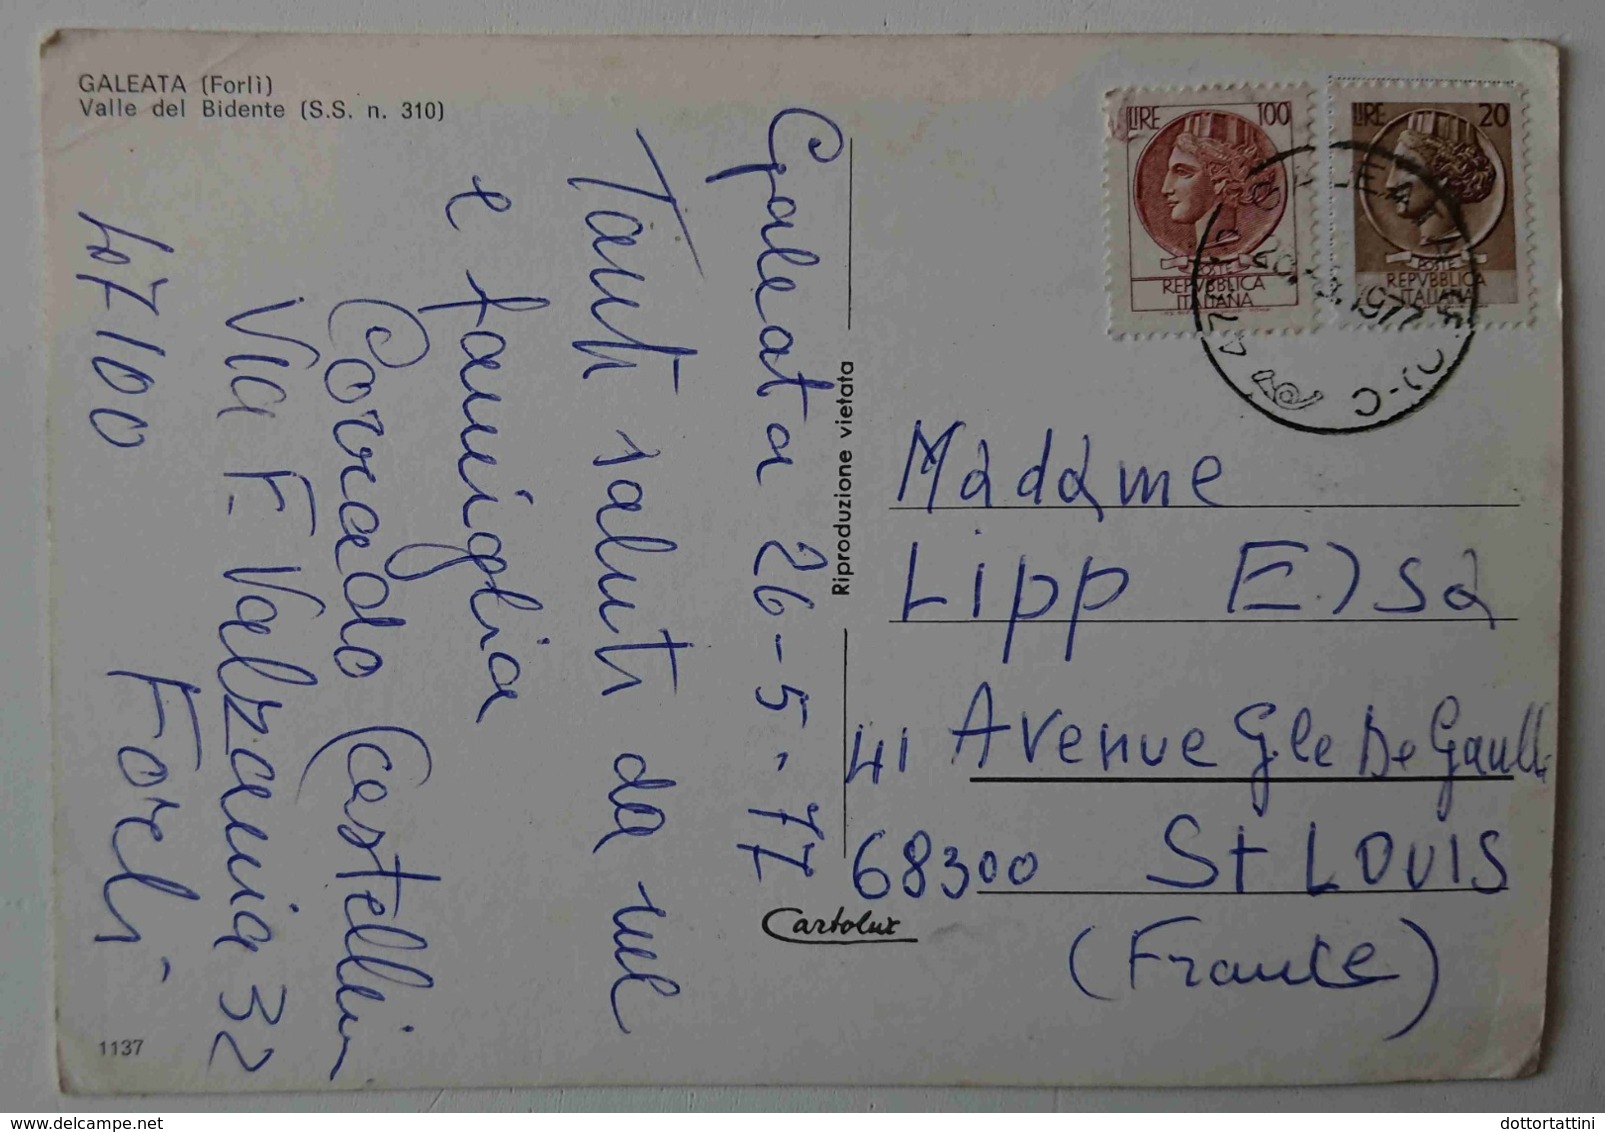 GALEATA (Forlì)
Valle del Bidente (S.S. n. 310)
Galeata 26-5-77
Tanti saluti da me
e famiglia
Corrado Castellini
Via F. Valzania 32
47100 Forlì
Riproduzione vietata
Cartolux
1137
LIRE 100
POSTE
REPVBBLICA
ITALIANA
LIRE 20
POSTE
REPVBBLICA
ITALIANA
GALEATA
1977
Madame
Lipp Elsa
41 Avenue Gle De Gaulle
68300 St LOUIS
(France)
dottortattini